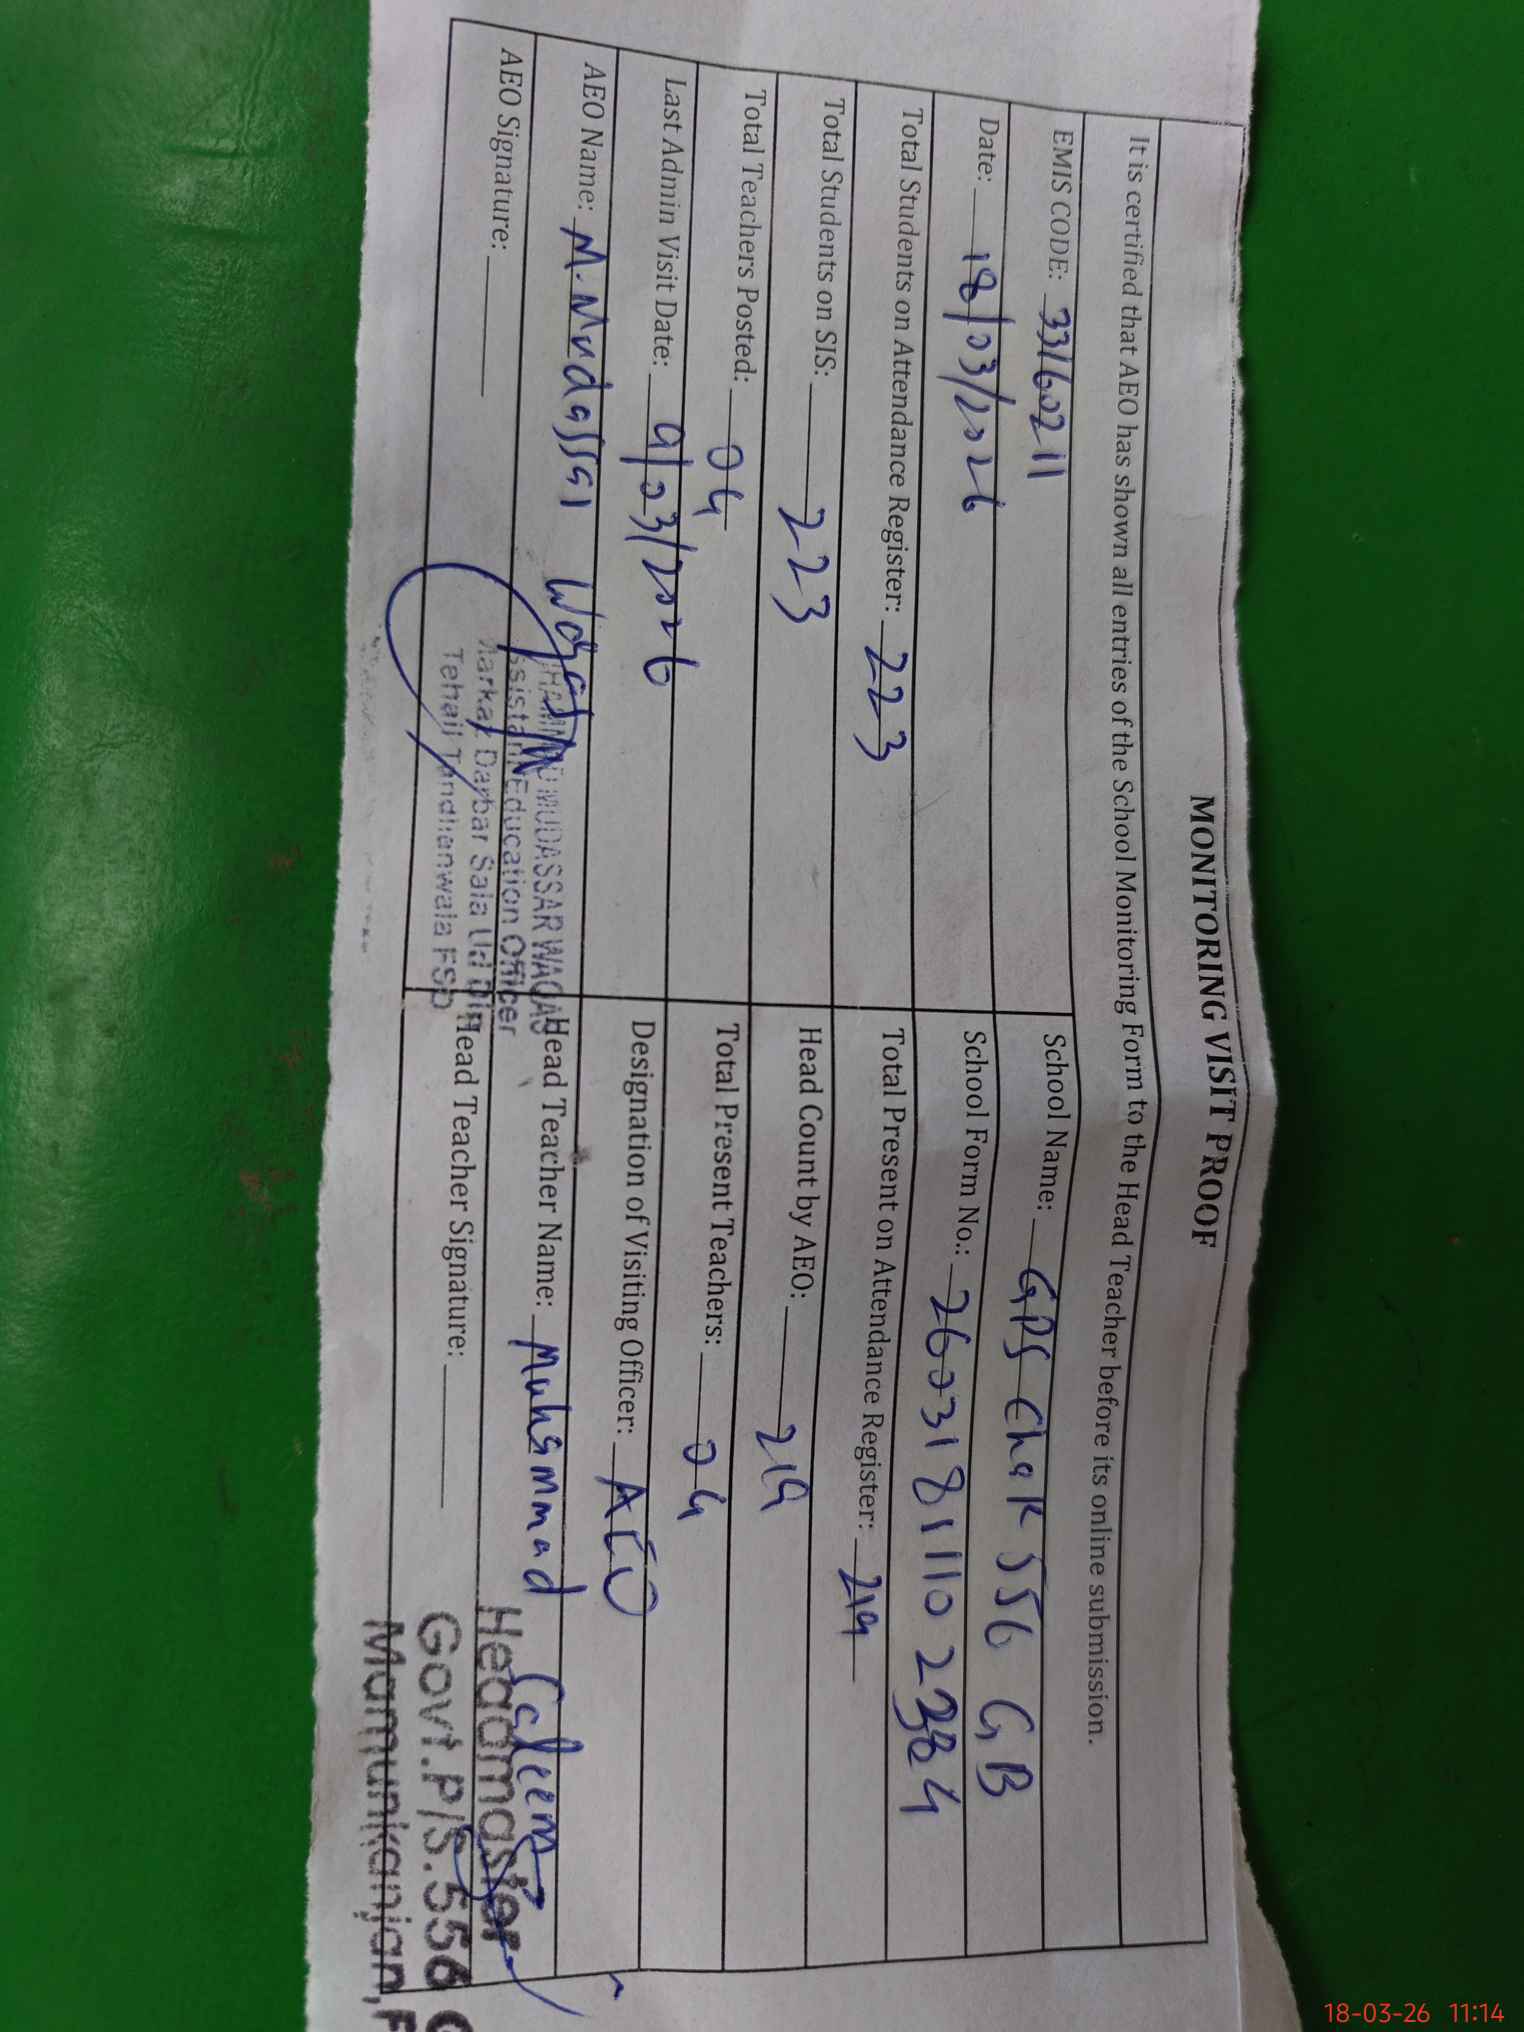 MONITORING VISIT PROOF
It is certified that AEO has shown all entries of the School Monitoring Form to the Head Teacher before its online submission.
EMIS CODE: 33160211 School Name: GPS Chak 556 GB
Date: 18/03/2026 School Form No.:
Total Students on Attendance Register: 223 Total Present on Attendance Register: 219
Total Students on SIS: 223 Head Count by AEO: 219
Total Teachers Posted: 04 Total Present Teachers: 04
Last Admin Visit Date: 9/03/2026 Designation of Visiting Officer: AEO
AEO Name: M. Mudassar Waqas Head Teacher Name: Muhammad Caleem
AEO Signature: Head Teacher Signature:
MUDASSAR WAQAS
Education Officer
Markaz Darbar Sala Ud Din
Tehail Tandlianwala FSD
Headmaster
Govt.P/S.556 G
Mamunkanjan,F
18-03-26 11:14